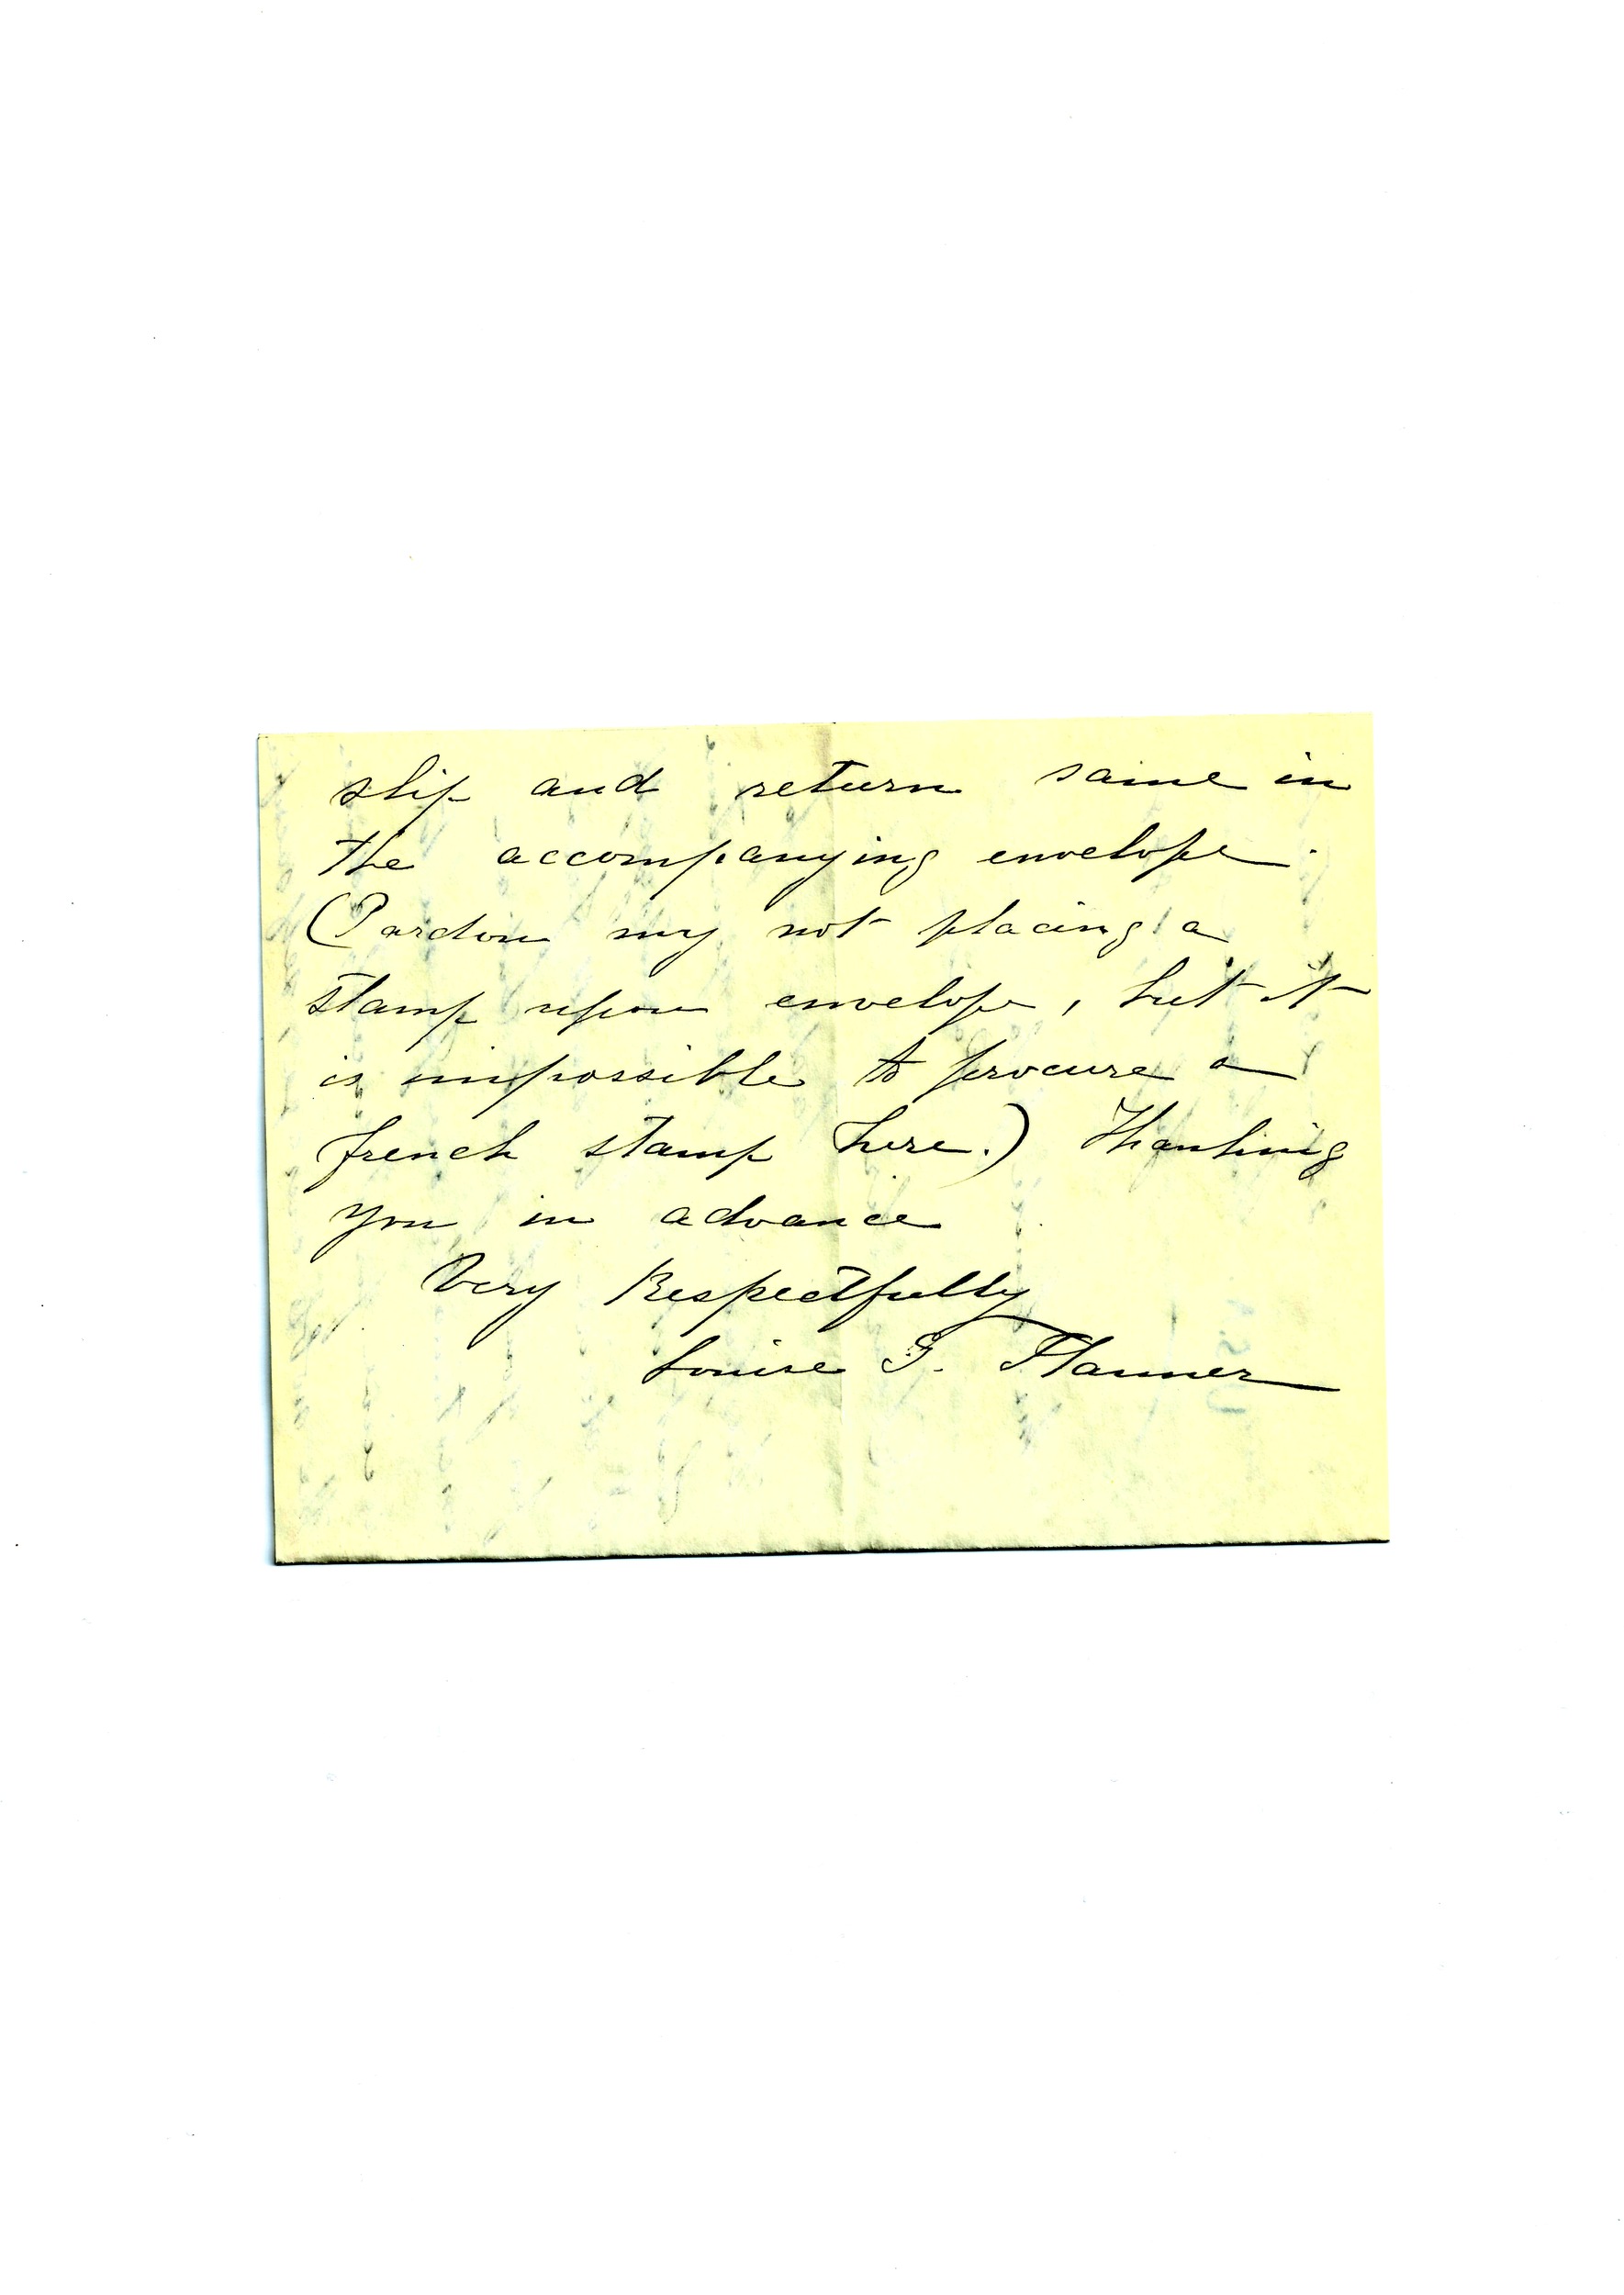 slip and return same in
the accompanying envelope.
(Pardon my not placing a
stamp upon envelope, but it
is impossible to procure a
french stamp here.) Thanking
you in advance
Very Respectfully
Louise F. Flanner